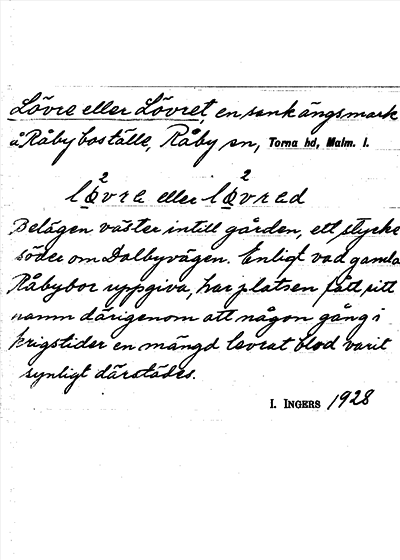 Lövre eller Lövret, en sank ängsmark
å Råby boställe, Råby sn, Torna hd, Malm. l.
lövre eller lövred
Belägen väster intill gården, ett stycke
söder om Dalbyvägen. Enligt vad gamla
Råbybor uppgiva, har platsen fått sitt
namn därigenom att någon gång i
krigstider en mängd levrat blod varit
synligt därstädes.
I. INGERS 1928